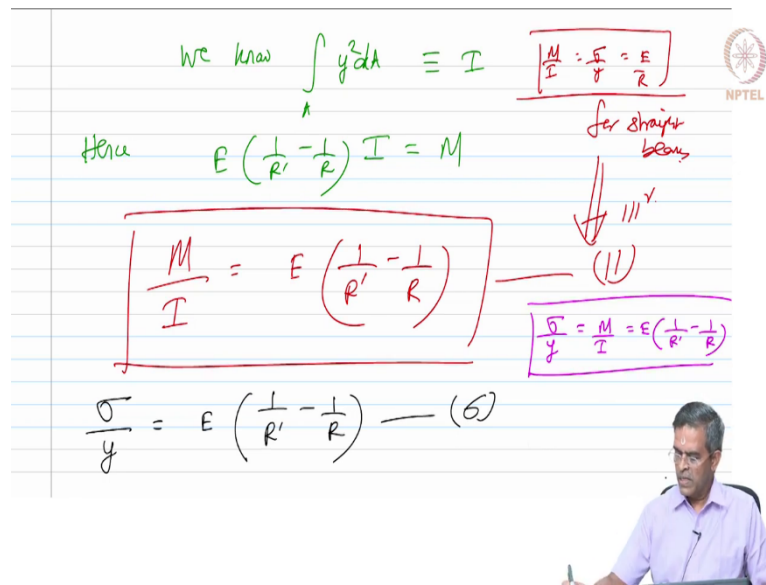 We know ∫_A y²dA ≡ I
M/I = σ/y = E/R
for straight
beams
Hence E (1/R' - 1/R) I = M
|||ʳ
M/I = E (1/R' - 1/R) — (11)
σ/y = M/I = E (1/R' - 1/R)
σ/y = E (1/R' - 1/R) — (6)
NPTEL